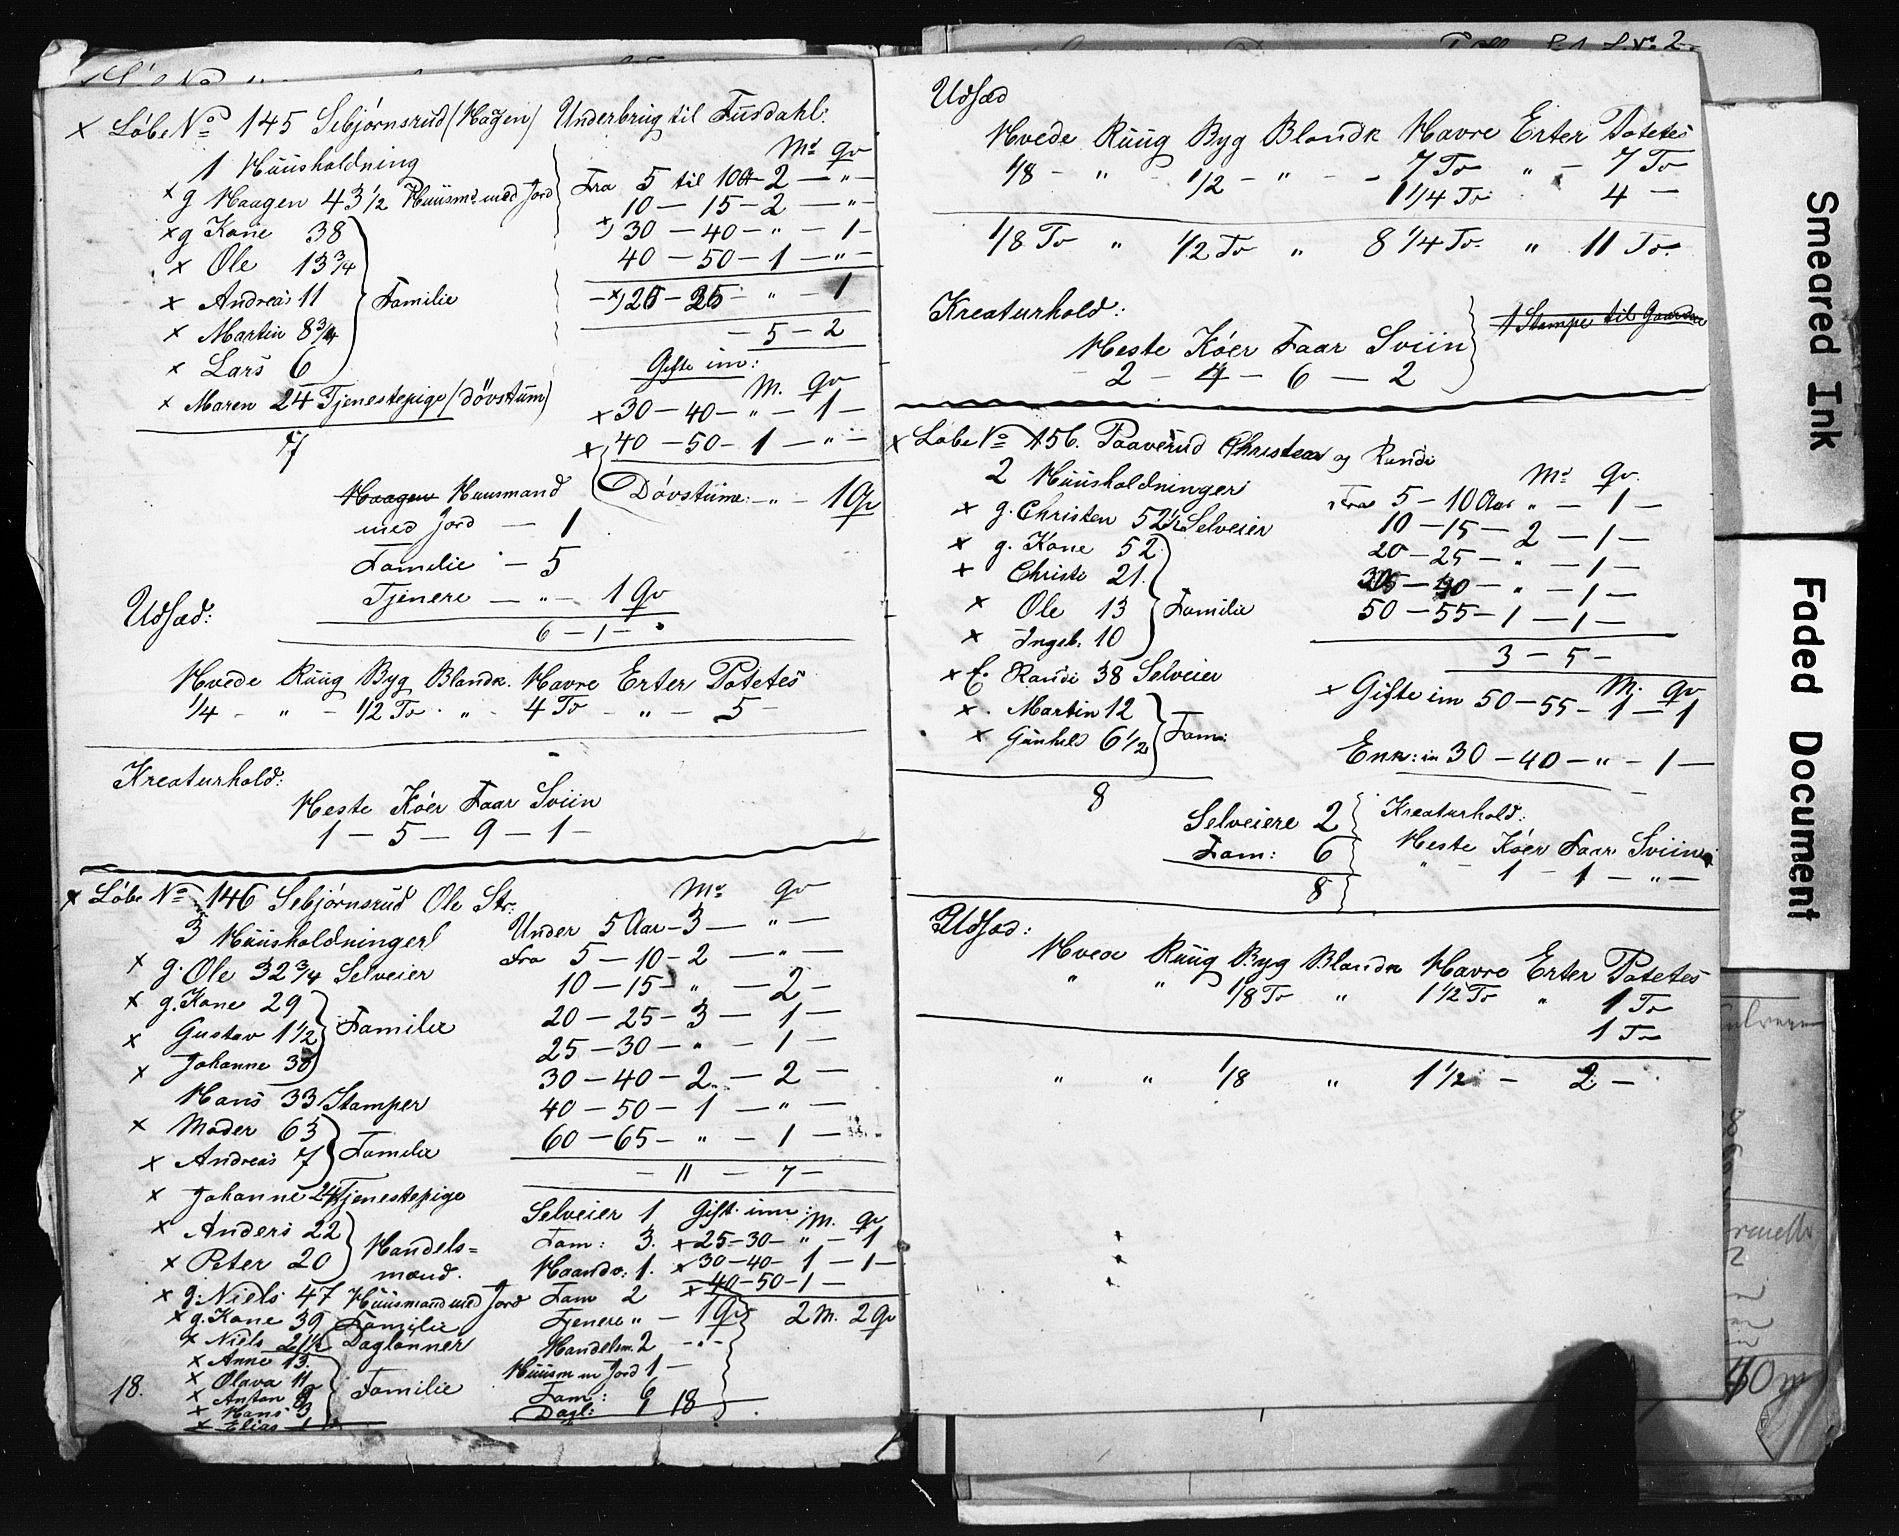 x Löbe No 145 Sebjörnsrud (Hagen) Underbrug til Fusdahl:
1 Huusholdning
x g Haagen 43 1/2 Huusmd med Jord
x g Kone 38
x Ole 13 3/4
x Andreas 11
x Martin 8 3/4
x Lars 6
Familie
x Maren 24 Tjenestepige (dövstum)
7
Md Qv
Fra 5 til 10 - 2 - " -
10 - 15 - 2 - " -
x) 30 - 40 - " - 1 -
40 - 50 - 1 - " -
- x) 25 - " - 1
- 5 - 2
Gifte im:
M. Qv
x 30 - 40 - " - 1 -
x 40 - 50 - 1 - " -
Dövstum: - " - 1 Qv
Haagen Huusmand
med Jord - 1
Familie - 5
Tjenere - " - 1 Qv
6 - 1 -
Udsæd:
Hvede Ruug Byg Blandk. Havre Erter Potetes
1/4 - " - 1/2 To - " - 4 To - " - 5 -
Kreaturhold:
Heste Köer Faar Sviin
1 - 5 - 9 - 1 -
x Löbe No 146 Sebjörnsrud Ole Str:
3 Huusholdninger
x g. Ole 32 3/4 Selveier
x g. Kone 29
x Gustav 1 1/2
x Johanne 30
Familie
Hans 33 Stamper
x Moder 63
x Andreas 7
Familie
x Johanne 24 Tjenestepige
x Anders 22
x Peter 20
Handels=
mænd.
x g. Niels 47 Huusmand med Jord
x g. Kone 39 Familie
x Niels 21 1/2 Daglönner
x Anne 13
x Olava 11
x Anton
x Hans 3
x Elias 1
Familie
18.
Md Qv
Under 5 Aar - 3 - " -
Fra 5 - 10 - 2 - " -
10 - 15 - " - 2 -
20 - 25 - 3 - 1 -
25 - 30 - " - 1 -
30 - 40 - 2 - 2 -
40 - 50 - 1 - " -
60 - 65 - " - 1 -
- 11 - 7 -
Selveier 1 Gift. inn:
M. Qv
Fam: 3. x 25-30 - " - 1
Haandv: 1. x 30-40 - 1 - 1 -
x 40-50 - 1 -
Fam 2
Tjenere " - 1 Qv 2 M. 2 Qv
Handelsm. 2 - " -
Huusm m Jord 1 -
Fam: 6
Dagl: 1 18
Udsæd
Hvede Ruug Byg Blandk Havre Erter Potetes
1/8 - " - 1/2 - " - - 7 To " - 7 To
1 1/4 To 4 -
1/8 To " 1/2 To " 8 1/4 To. " 11 To.
Kreaturhold:
Heste Köer Faar Sviin
2 - 4 - 6 - 2
1 Stampe til Gaarden
x Löbe No 156. Paaverud Christen og Randi
2 Huusholdninger
x g. Christen 52 1/2 Selveier
x g. Kone 52
x Christi 21.
x Ole 13
x Ingeb. 10
Familie
x E. Randi 38 Selveier
x Martin 12
x Gunhild 6 1/2
Fam:
8
Md Qv.
Fra 5 - 10 Aar " - 1 -
10 - 15 - 2 - 1 -
20 - 25 - " - 1 -
- " - 1 -
50 - 55 - 1 - 1 -
3 - 5 -
M. Qv
x Gifte im 50 - 55 - 1 - 1
Enk: in 30 - 40 - " - 1 -
Selveiere 2
Fam: 6
8
Kreaturhold:
Heste Köer Faar Sviin
" - 1 - 1 - " -
Udsæd:
Hvede Ruug Byg Blandk Havre Erter Potetes
" " 1/8 To " 1 1/2 To " 1 To
1 To
" " 1/8 " 1 1/2 - 2 -
Smeared Ink
Faded Document